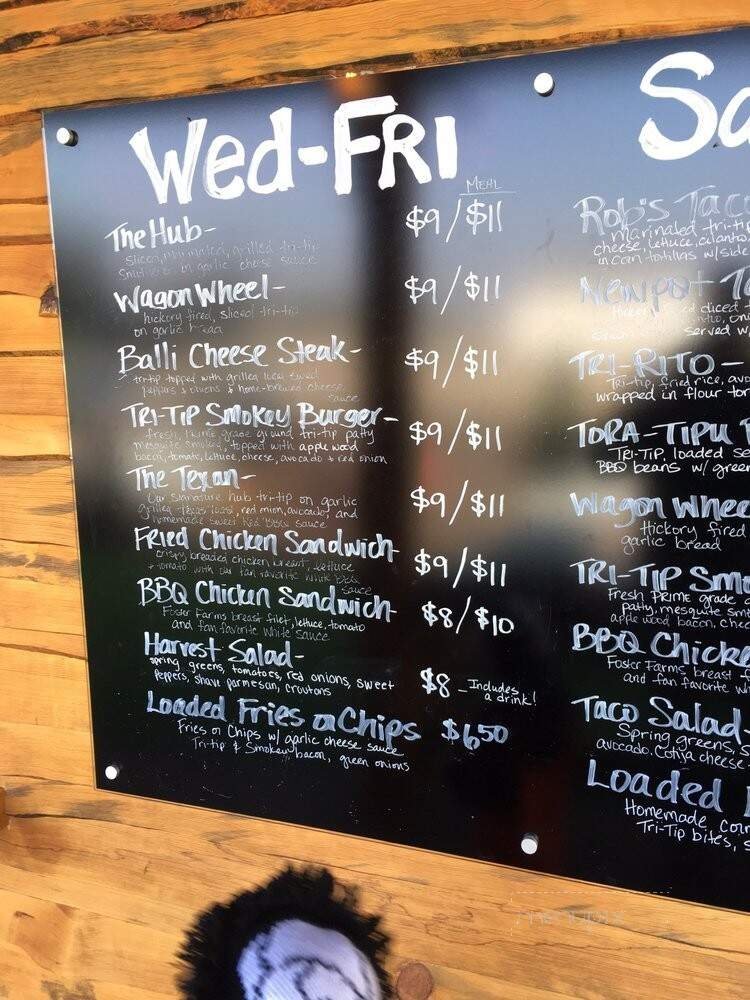 Wed-FRI
MEAL
The Hub- $9/$11
sliced, marinated, grilled tri-tip
in garlic cheese sauce
Wagon Wheel- $9/$11
hickory fired, sliced tri-tip
on garlic bread
Balli Cheese Steak- $9/$11
tri-tip topped with grilled sweet
peppers & onions & home-brewed cheese
sauce
TRI-TIP SMOKEY BURGER- $9/$11
fresh, prime grade ground tri-tip patty
mesquite smoked, topped with apple wood
bacon, tomato, lettuce, cheese, avocado & red onion
The Texan- $9/$11
Our signature hub tri-tip on garlic
grilled texas toast, red onion, avocado, and
homemade sweet Red BBQ sauce
Fried Chicken Sandwich- $9/$11
crispy breaded chicken breast, lettuce
& tomato with our fan favorite white BBQ
sauce
BBQ Chicken Sandwich- $8/$10
Foster Farms breast filet, lettuce, tomato
and fan favorite white sauce
Harvest Salad- $8 - Includes
a drink!
spring greens, tomatoes, red onions, sweet
peppers, shave parmesan, croutons
Loaded Fries or Chips $6.50
Fries or Chips w/ garlic cheese sauce
Tri-tip & Smokey bacon, green onions
Sa
Rob's Taco
marinated tri-tip
cheese, lettuce, cilanto
in corn tortillas w/side
Newport
diced t
served w/
TRI-RITO -
Tri-tip, fried rice, avo
wrapped in flour tor
TORA-TIPU
TRI-TIP, loaded se
BBQ beans w/ green
Wagon Whee
Hickory fired
garlic bread
TRI-TIP Smo
Fresh PRIME grade g
patty, mesquite smo
apple wood bacon, chee
BBQ Chicke
Foster Farms, breast f
and fan favorite w
Taco Salad-
Spring greens, s
avocado, Cotija cheese
Loaded
Homemade corn
Tri-Tip bites, s
menupix